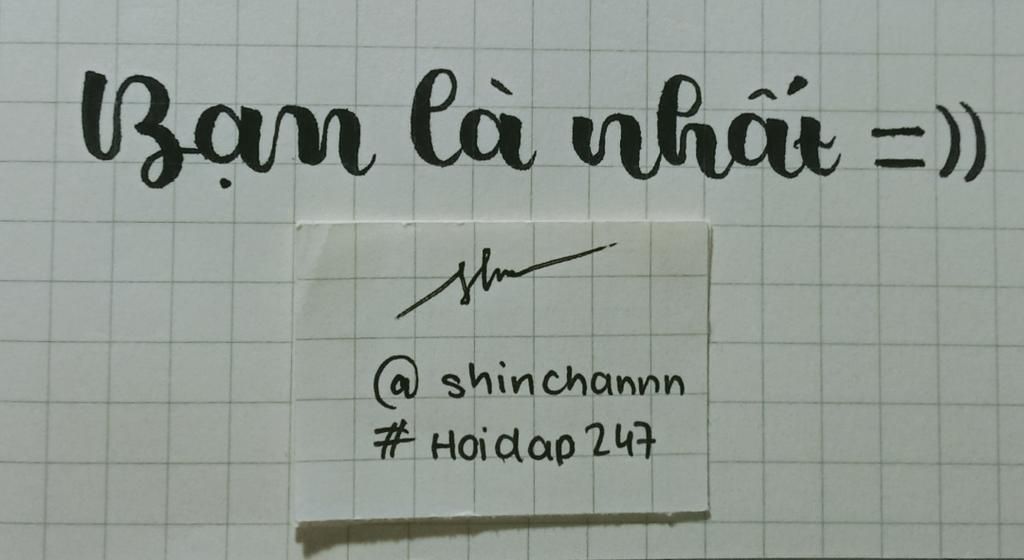 Bạn là nhất =))
@ shinchannn
# Hoidap 247